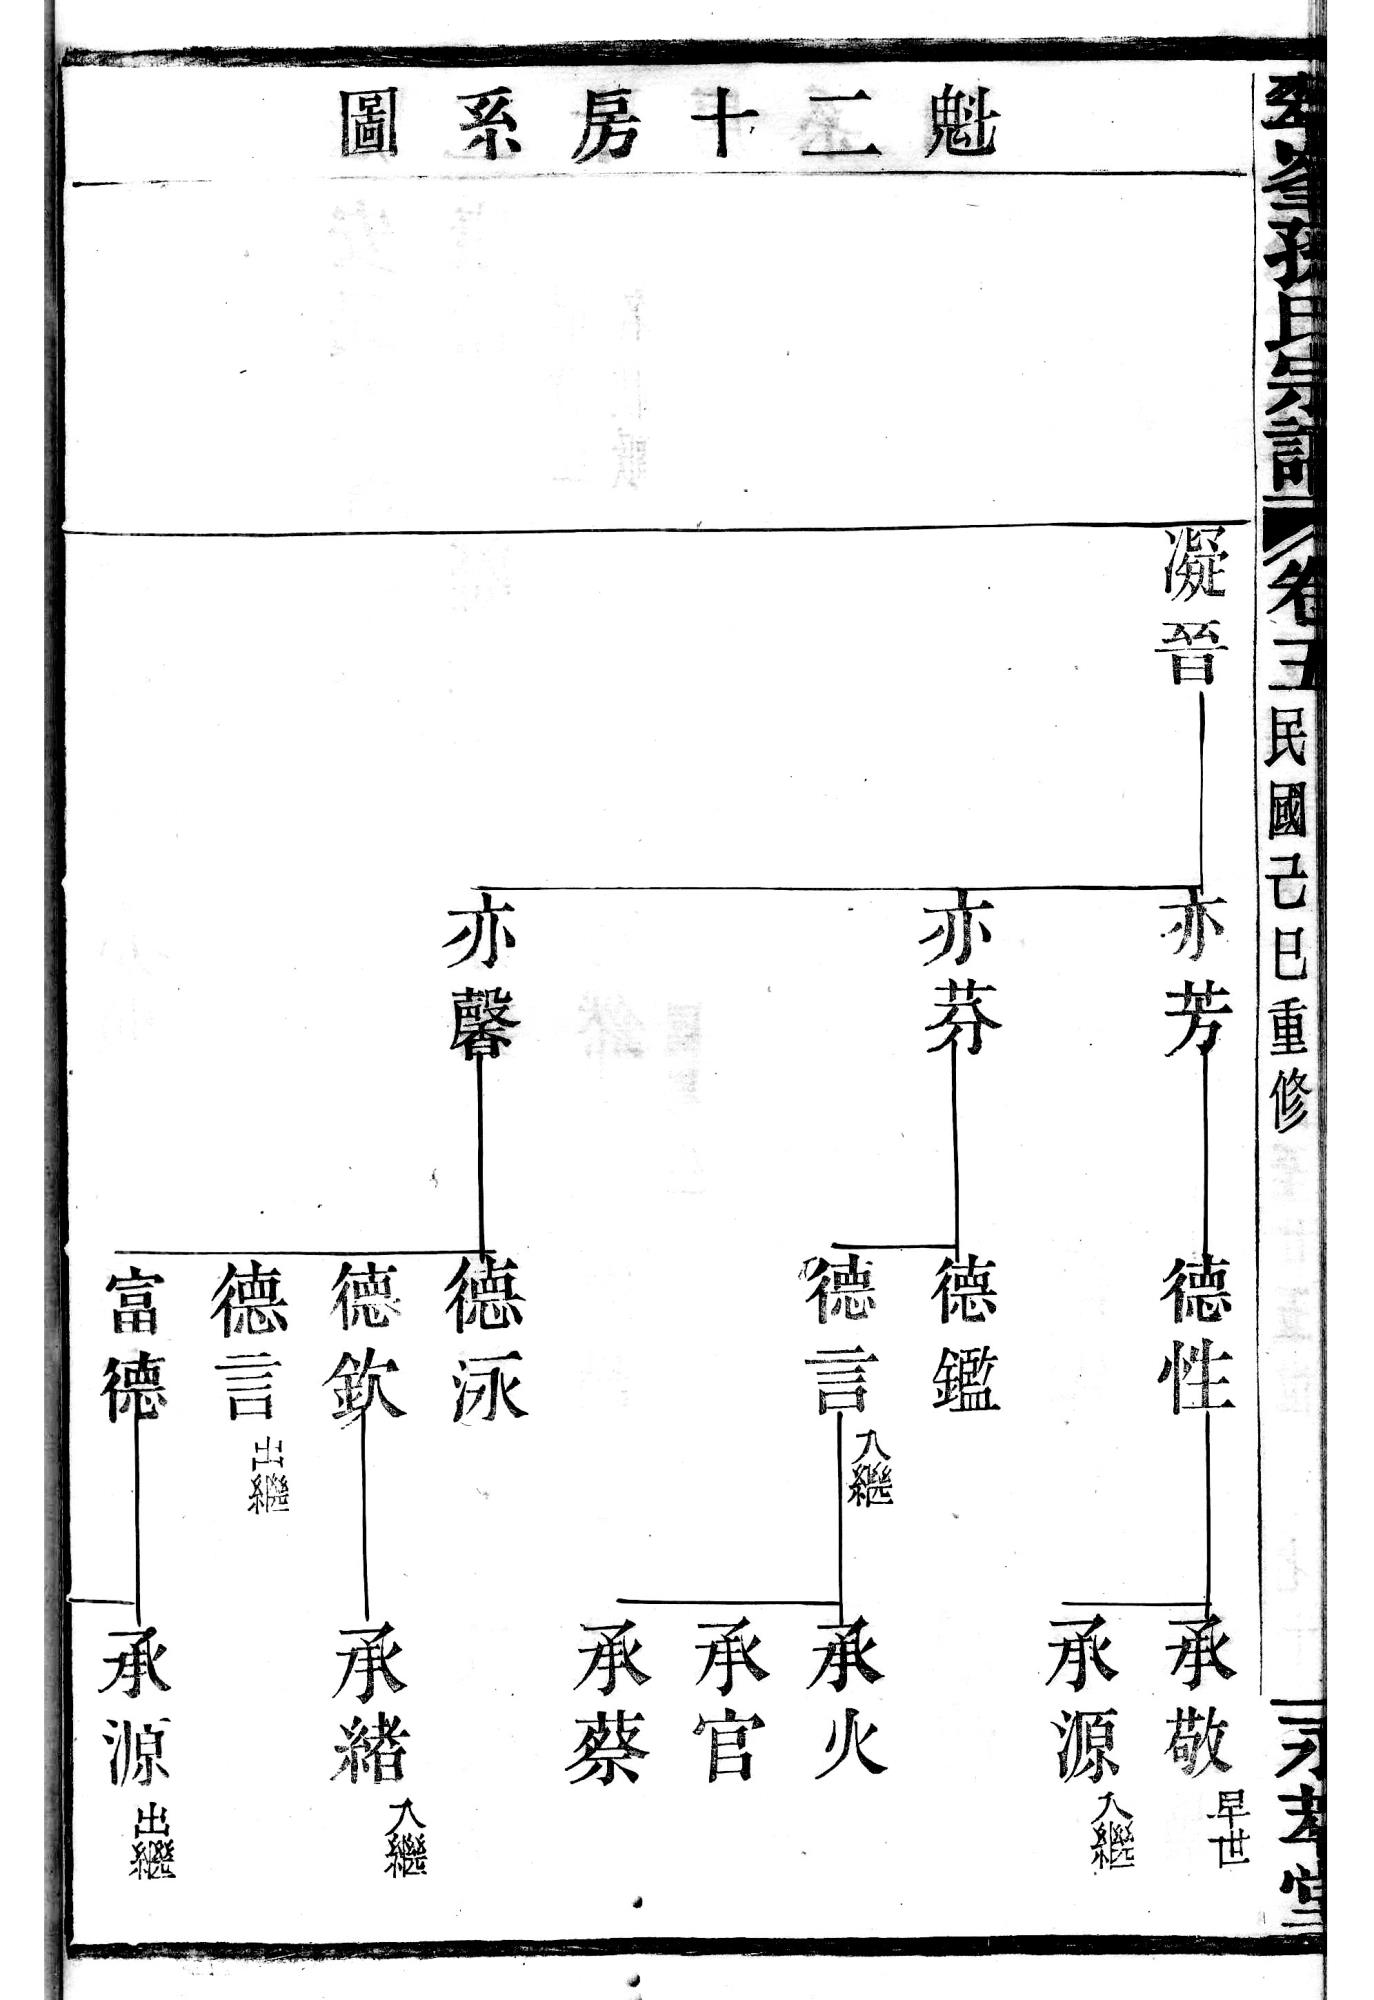 孫氏宗譜
卷五
民國己巳重修
魁二十房系圖
凝晉
亦芳
亦芬
亦馨
德性
德鑑
德言 入繼
德泳
德欽
德言 出繼
富德
承敬 早世
承源 入繼
承火
承官
承蔡
承緒 入繼
承源 出繼